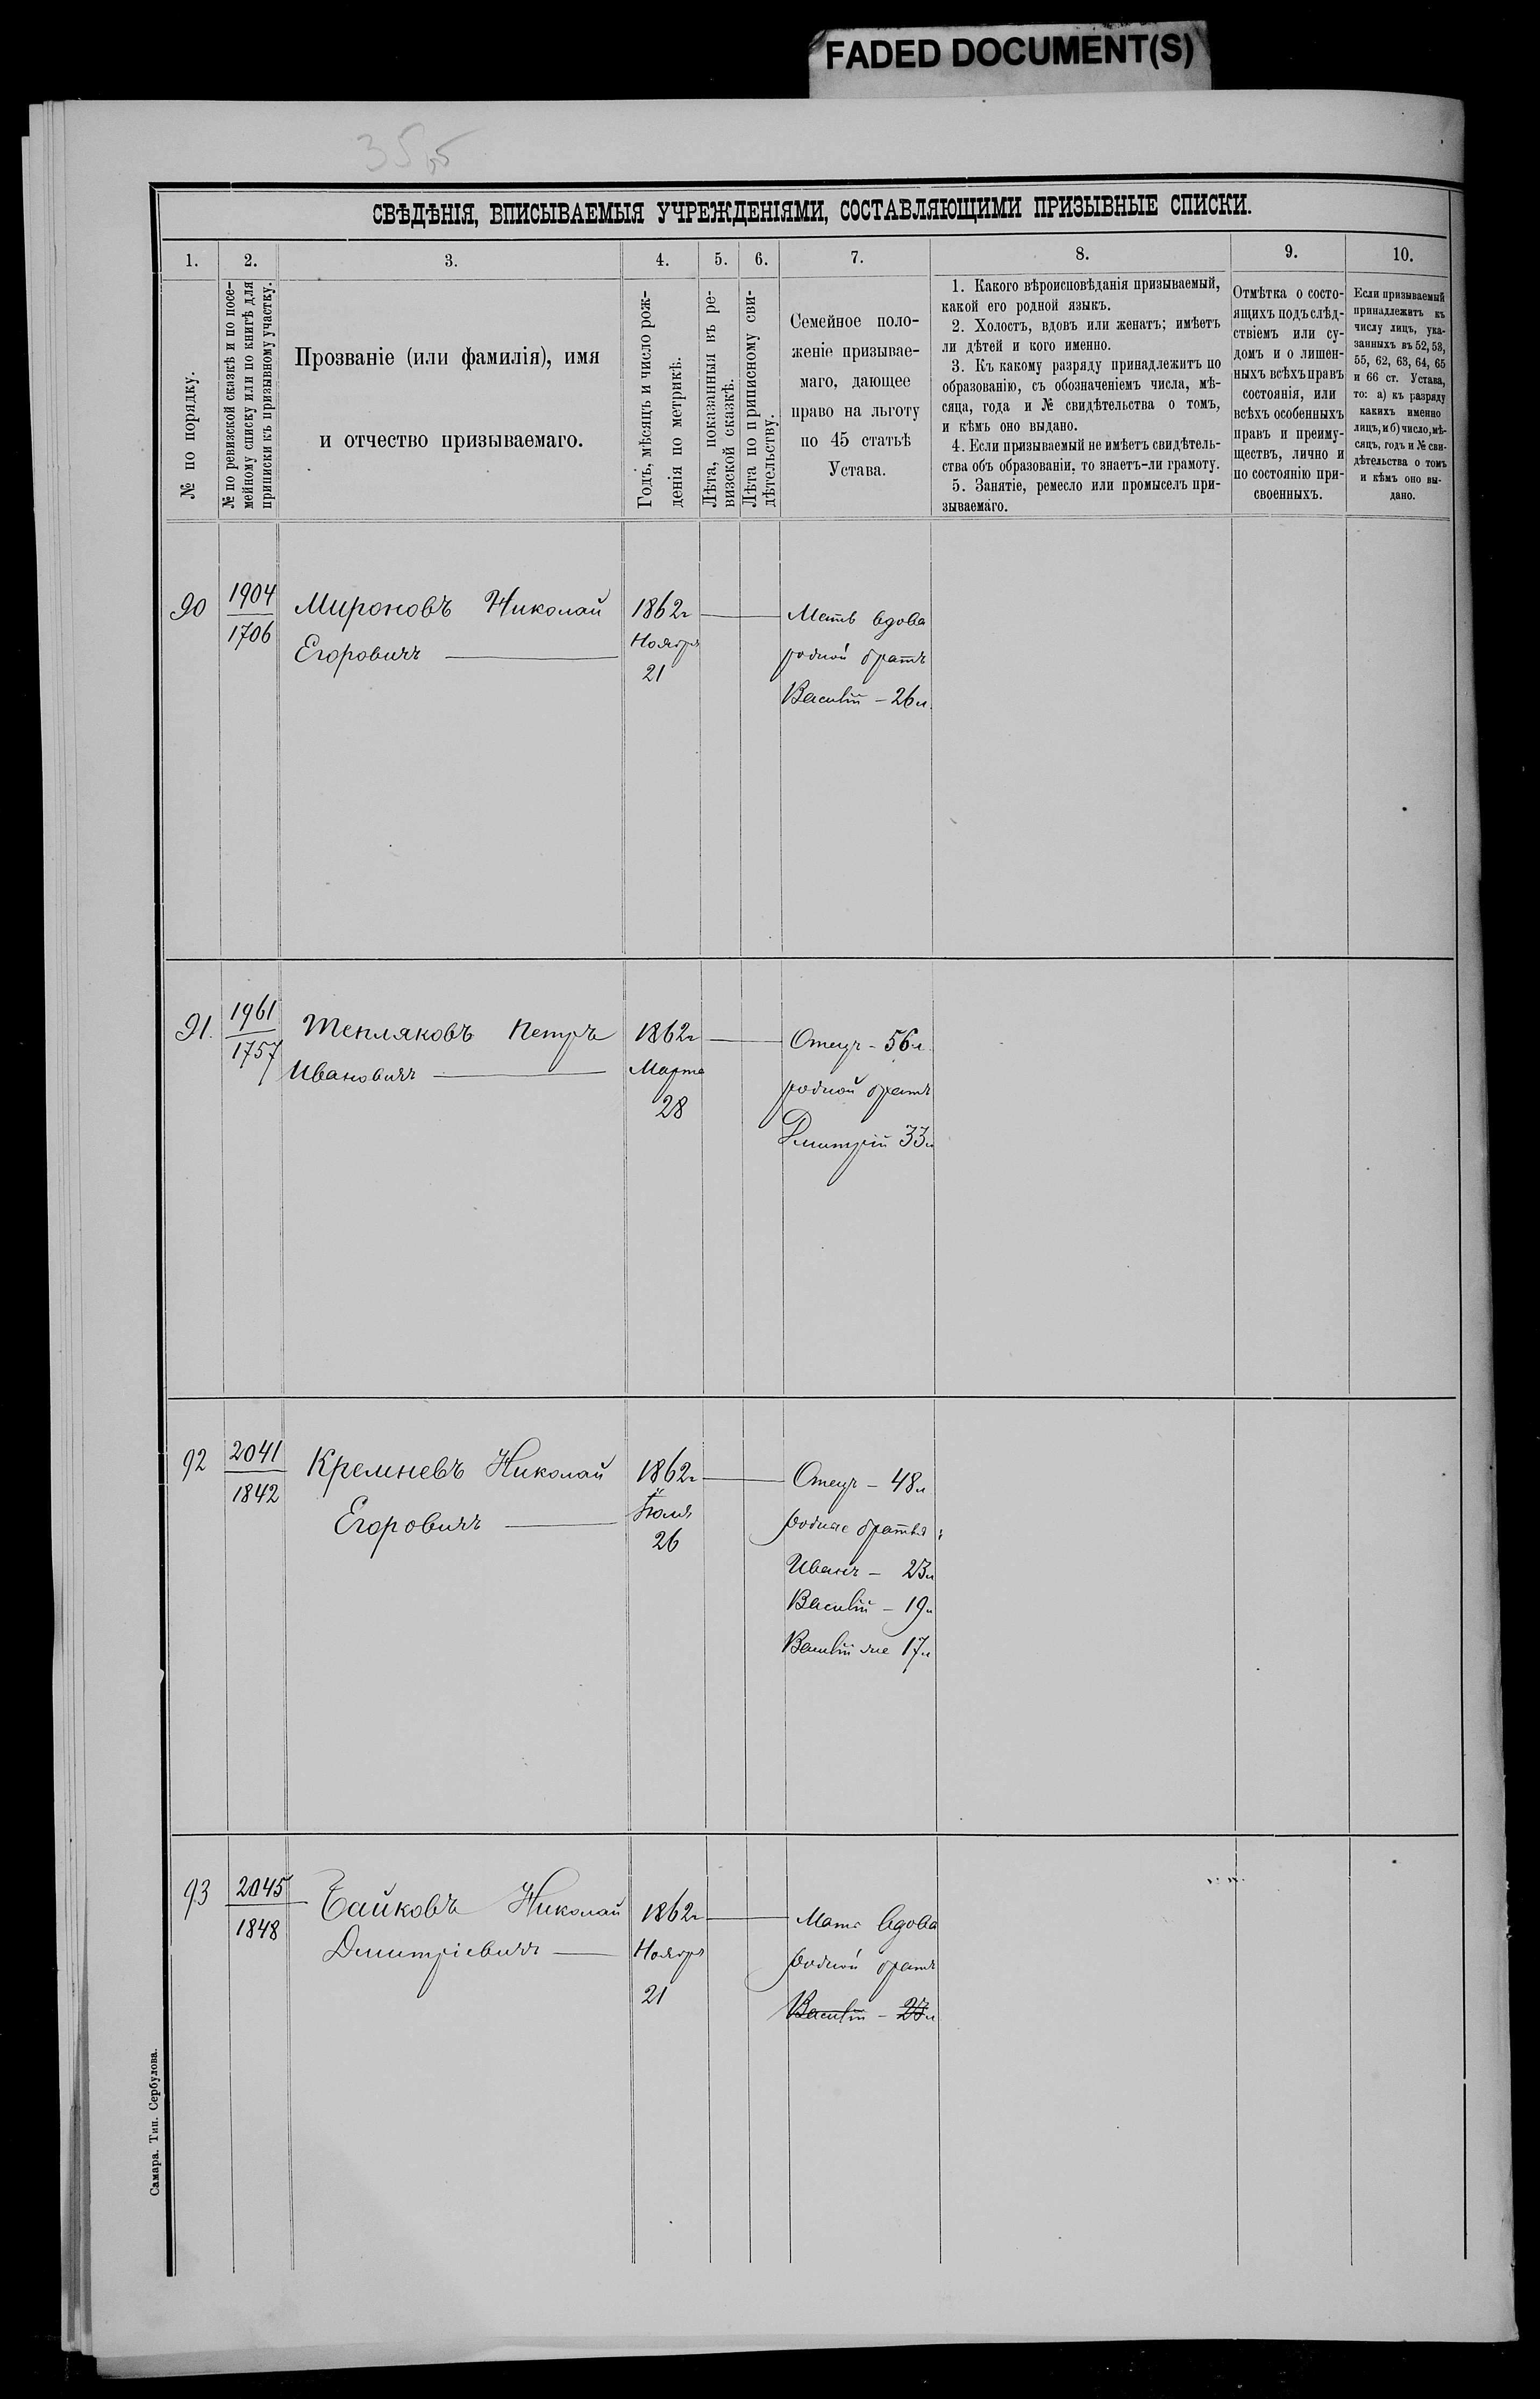 FADED DOCUMENT(S)
СВѢДѢНІЯ, ВПИСЫВАЕМЫЯ УЧРЕЖДЕНІЯМИ, СОСТАВЛЯЮЩИМИ ПРИЗЫВНЫЕ СПИСКИ.
1.
№ по порядку.
2.
№ по ревизской сказкѣ и по посе-
мейному списку или по книгѣ для
приписки къ призывному участку.
3.
Прозваніе (или фамилія), имя
и отчество призываемаго.
4.
Годъ, мѣсяцъ и число рож-
денія по метрикѣ.
5.
Лѣта, показанныя въ ре-
визской сказкѣ.
6.
Лѣта по приписному сви-
дѣтельству.
7.
Семейное поло-
женіе призывае-
маго, дающее
право на льготу
по 45 статьѣ
Устава.
8.
1. Какого вѣроисповѣданія призываемый,
какой его родной языкъ.
2. Холостъ, вдовъ или женатъ; имѣетъ
ли дѣтей и кого именно.
3. Къ какому разряду принадлежитъ по
образованію, съ обозначеніемъ числа, мѣ-
сяца, года и № свидѣтельства о томъ,
и кѣмъ оно выдано.
4. Если призываемый не имѣетъ свидѣтель-
ства объ образованіи, то знаетъ-ли грамоту.
5. Занятіе, ремесло или промыселъ при-
зываемаго.
9.
Отмѣтка о состо-
ящихъ подъ слѣд-
ствіемъ или су-
домъ и о лишен-
ныхъ всѣхъ правъ
состоянія, или
всѣхъ особенныхъ
правъ и преиму-
ществъ, лично и
по состоянію при-
своенныхъ.
10.
Если призываемый
принадлежитъ къ
числу лицъ, ука-
занныхъ въ 52, 53,
55, 62, 63, 64, 65
и 66 ст. Устава,
то: а) къ разряду
какихъ именно
лицъ, и б) число, мѣ-
сяцъ, годъ и № сви-
дѣтельства о томъ
и кѣмъ оно вы-
дано.
90
1904
1706
Мироновъ Николай
Егоровичъ
1862г
Ноября
21
Мать вдова
родной братъ
Василій - 26 л.
91.
1961
1757
Тепляковъ Петръ
Ивановичъ
1862г
Марта
28
Отецъ - 56 л.
родной братъ
Дмитрій 33 л
92
2041
1842
Кремневъ Николай
Егоровичъ
1862г
Іюля
26
Отецъ - 48 л
родные братья:
Иванъ - 23 л
Василій - 19 л
Василій же 17 л
93
2045
1848
Байковъ Николай
Дмитріевичъ
1862г
Ноября
21
Мать вдова
родной братъ
Василій - 27 л
Самара. Тип. Сербулова.